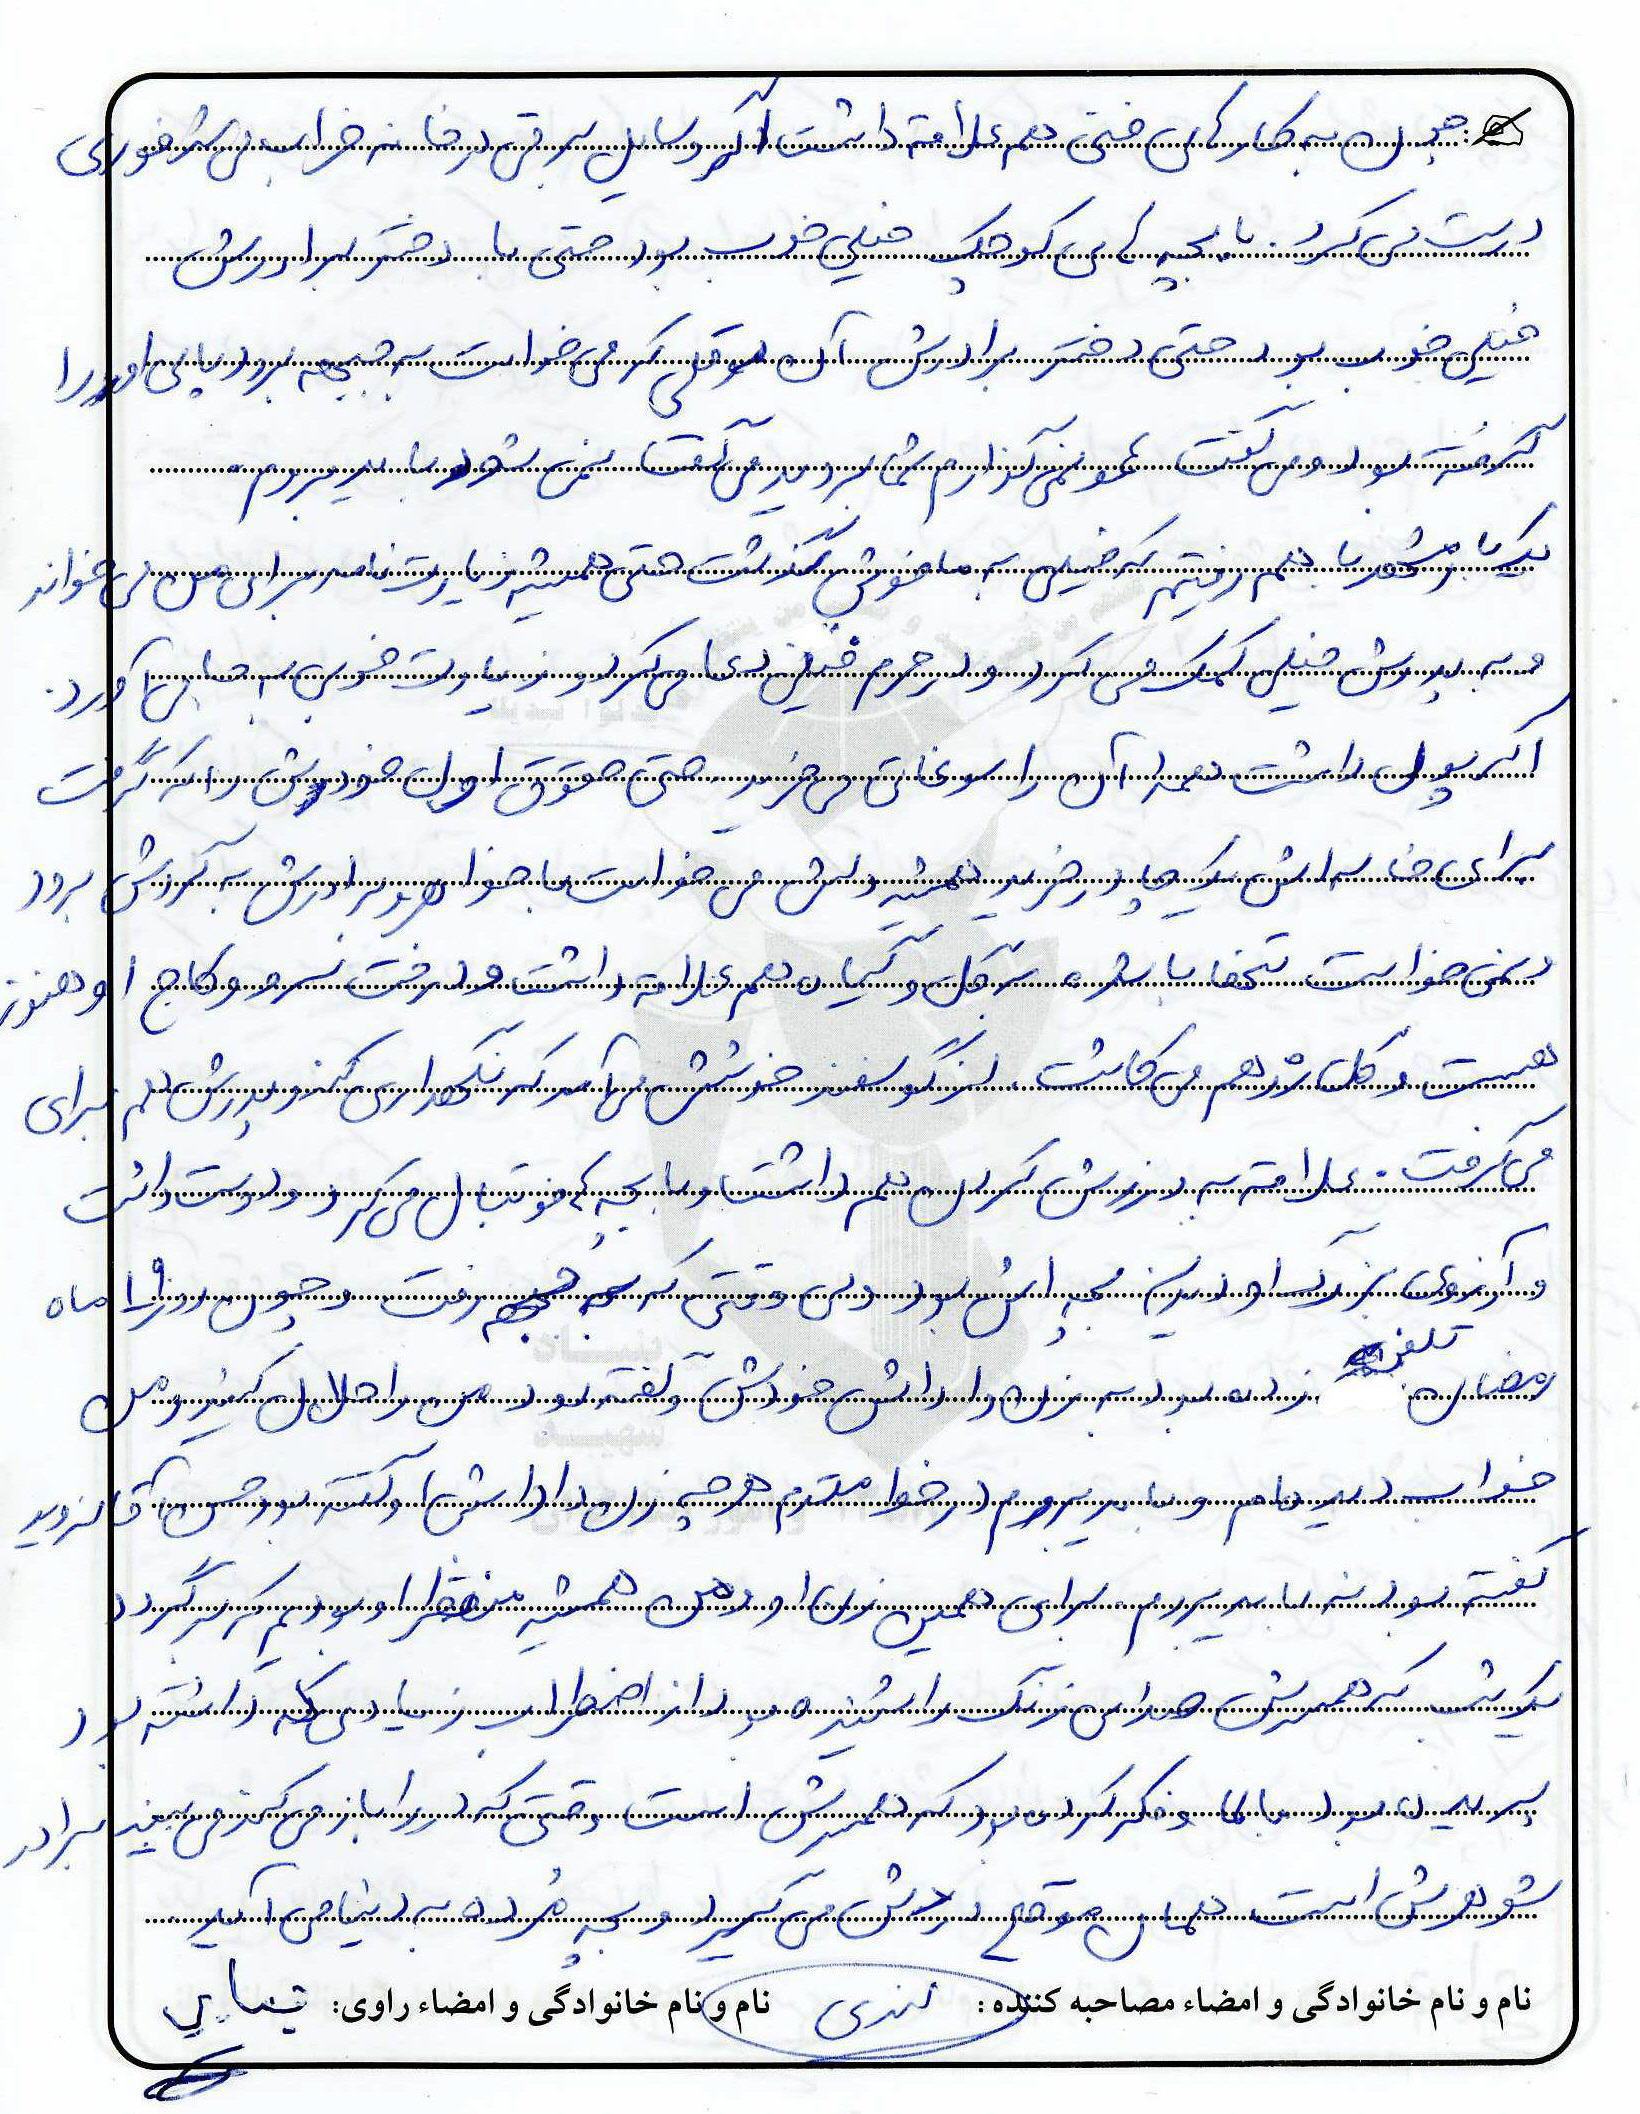 چون به کارهای فنی هم علاقه داشت اگر وسایل برقی در خانه خراب می شد فوری
درست می کرد. با بچه های کوچک خیلی خوب بود حتی با دختر برادرش
خیلی خوب بود حتی دختر برادرش آن موقعی که می خواست به جبهه برود پای او را
گرفته بود و می گفت عمو نمی گذارم شما بروید می گفت نمی شود باید بروم.
یکبار مشهد با هم رفتیم که خیلی به ما خوش گذشت حتی همیشه زیارت نامه برای من می خواند
و به پدرش خیلی کمک می کرد و در حرم خیلی دعا می کرد و زیارت خوبی به جا می آورد.
اگر پول داشت همه آن را سوغاتی می خرید حتی حقوق اول خودش را که گرفت
برای خانه اش یک چادر خرید همیشه دلش می خواست با خواهر و برادرش به گردش برود
نمی خواست تنها باشد. به گل و گیاه هم علاقه داشت و درخت سرو و کاج او هنوز
هست و گل رز هم می کاشت. از گوسفند خوشش می آمد که نگهداری کند و پدرش هم برای
می گرفت. علاقه به ورزش کردن هم داشت و با بچه ها فوتبال می کرد و دوست داشت
و آرزوی بزرگ او دیدن بچه اش بود ولی وقتی که به جبهه رفت و چون روز ۱۹ ماه
رمضان تلفن زده بود به زن داداش خودش و گفته بود من را حلال کنید و من
خواب دیده ام و باید بروم در خواهرم هر چه زن داداش او گفته بود حسن آقا نروید
گفته بود نه باید بروم. برای همین زن او و من همیشه منتظر او بودیم که برگردد
یک شب که همسرش صدای زنگ را شنیده بود از اضطراب زیادی که داشته بود
پریده بود بالا و فکر کرده بود که همسرش است وقتی که در را باز می کند می بیند برادر
شوهرش است همان موقع دردش می گیرد و بچه مرده به دنیا می آید
نام و نام خانوادگی و امضاء مصاحبه کننده: نام و نام خانوادگی و امضاء راوی: